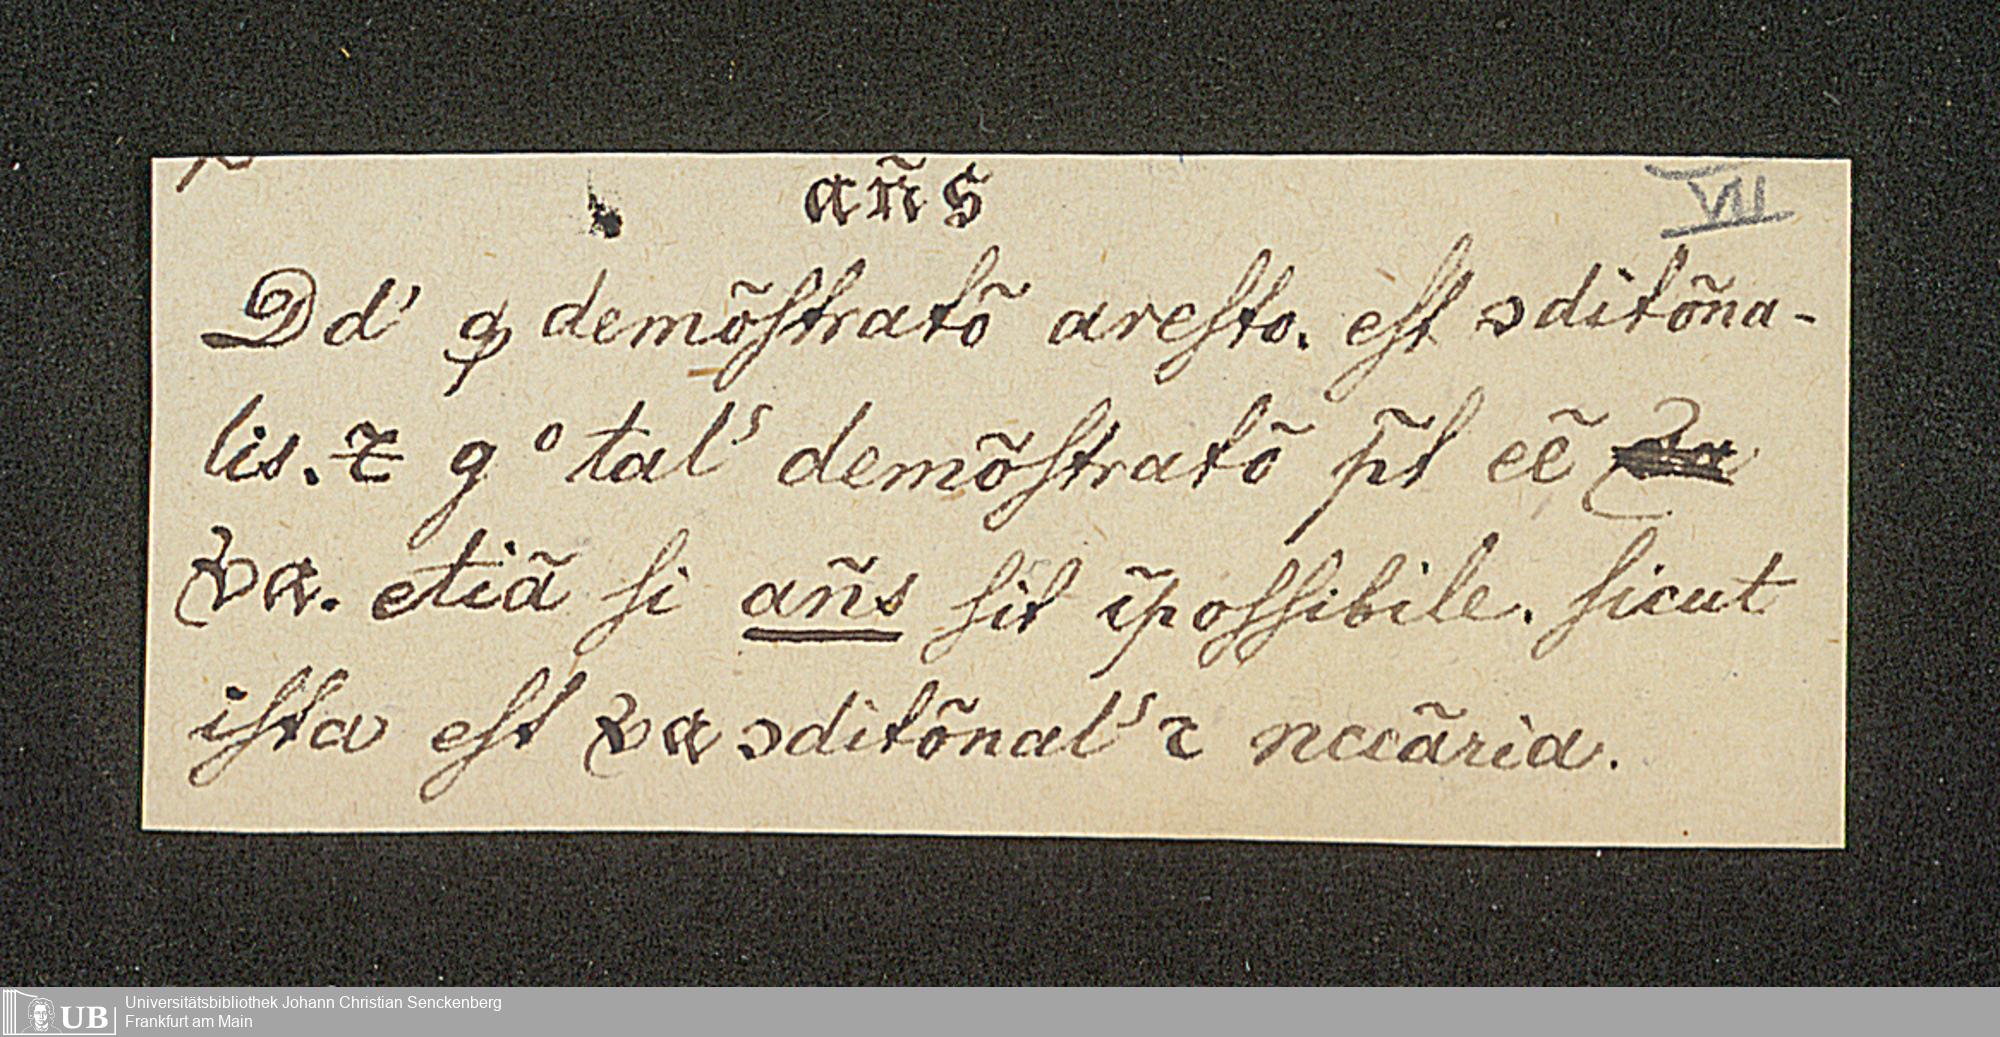 VII
añs
Dd' ꝙ demõſtratõ areſto. eſt ꝯditõna-
lis. ⁊ gº talˢ demõſtratõ p̃t eẽ
va. etiã ſi añs ſit ĩpoſſibile. ſicut
iſta eſt va ꝯditõnalˢ ⁊ nccãria.
UB
Universitätsbibliothek Johann Christian Senckenberg
Frankfurt am Main